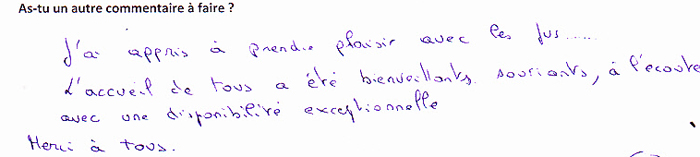 As-tu un autre commentaire à faire ?
J'ai appris à prendre plaisir avec les jus......
L'accueil de tous a été bienveillants souriants, à l'écoute
avec une disponibilité exceptionnelle
Merci à tous.